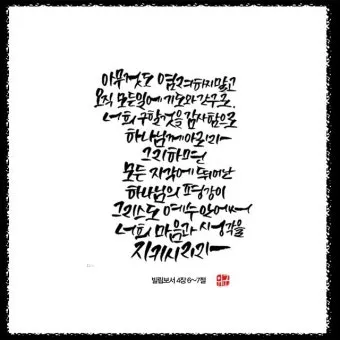 아무것도 염려하지말고
오직 모든일에 기도와 간구로,
너희 구할것을 감사함으로
하나님께 아뢰라
그리하면
모든 지각에 뛰어난
하나님의 평강이
그리스도 예수 안에서
너희 마음과 생각을
지키시리라
빌립보서 4장 6~7절